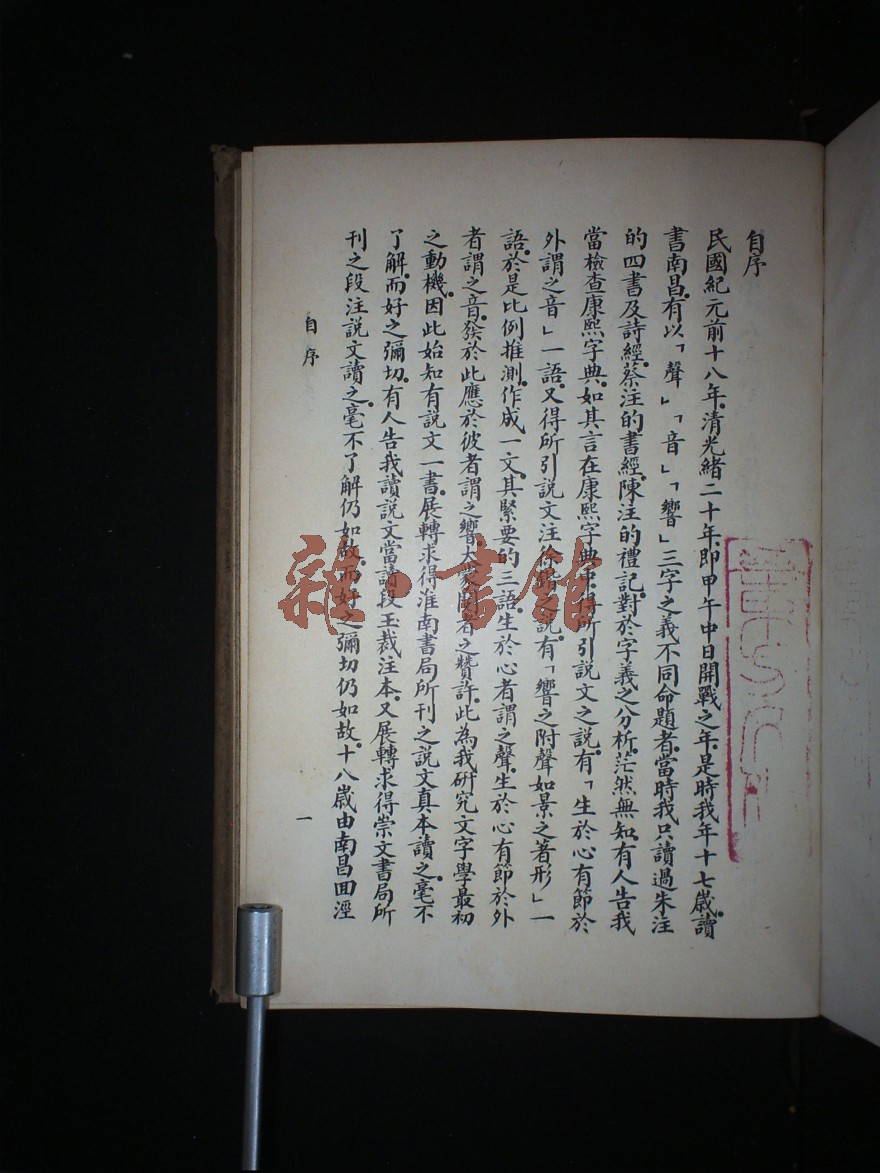 自序
民國紀元前十八年。清光緒二十年。即甲午中日開戰之年。是時我年十七歲。讀
書南昌。有以「聲」「音」「響」三字之義不同命題者。當時我只讀過朱注
的四書及詩經。蔡注的書經。陳注的禮記。對於字義之分析。茫然無知。有人告我
當檢查康熙字典。如其言。在康熙字典中得所引說文之說。有「生於心有節於
外謂之音」一語。又得所引說文注徐鍇之說。有「響之附聲如景之著形」一
語。於是比例推測。作成一文。其緊要的三語。生於心者謂之聲。生於心有節於外
者謂之音。發於此應於彼者謂之響。大蒙閱者之贊許。此為我研究文字學最初
之動機。因此始知有說文一書。展轉求得淮南書局所刊之說文真本讀之。毫不
了解。而好之彌切。有人告我讀說文當讀段玉裁注本。又展轉求得崇文書局所
刊之段注說文讀之。毫不了解仍如故。而好之彌切仍如故。十八歲由南昌回涇
自序
一
雜·書館